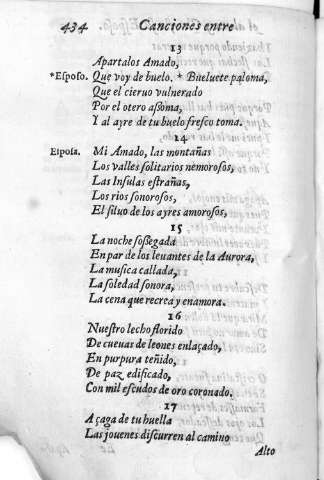 434 Canciones entre
13
Apartalos Amado,
*Esposo. Que voy de buelo. * Bueluete paloma,
Que el cieruo vulnerado
Por el otero assoma,
Y al ayre de tu buelo fresco toma.
14
Esposa. Mi Amado, las montañas
Los valles solitarios nemorosos,
Las Insulas estrañas,
Los rios sonorosos,
El siluo de los ayres amorosos,
15
La noche sossegada
En par de los leuantes de la Aurora,
La musica callada,
La soledad sonora,
La cena que recrea y enamora.
16
Nuestro lecho florido
De cueuas de leones enlaçado,
En purpura teñido,
De paz edificado,
Con mil escudos de oro coronado.
17
A çaga de tu huella
Las jouenes discurren al camino
Alto